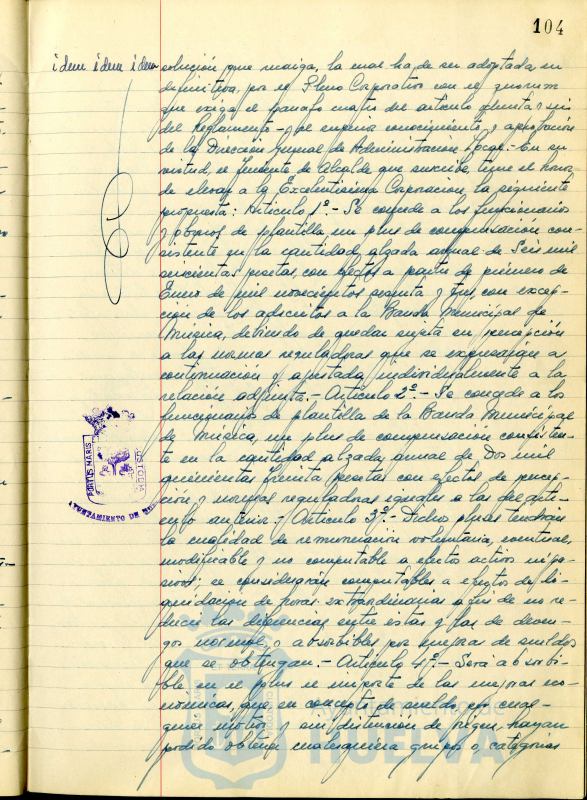 104
idem idem idem
solución que recaiga, la cual ha de ser adoptada en
definitiva, por el Pleno Corporativo con el quorum
que exige el párrafo cuatro del artículo
del Reglamento - y el superior conocimiento y aprobación
de la Dirección General de Administración Local.- En su
virtud, el Teniente de Alcalde que suscribe, tiene el honor
de elevar a la Excelentísima Corporación, la siguiente
propuesta: Artículo 1º.- Se concede a los funcionarios
y obreros de plantilla, un plus de compensación con-
sistente en la cantidad alzada anual de Seis mil
pesetas, con efectos a partir de primero de
Enero de mil novecientos sesenta y tres, con excep-
ción de los adscritos a la Banda Municipal de
Música, debiendo de quedar sujeta en percepción
a las normas reguladoras que se expresan a
continuación y ajustada individualmente a la
relación adjunta.- Artículo 2º.- Se concede a los
funcionarios de plantilla de la Banda Municipal
de Música, un plus de compensación consisten-
te en la cantidad alzada anual de Dos mil
quinientas treinta pesetas con efectos de percep-
ción y normas reguladoras iguales a las del artí-
culo anterior.- Artículo 3º.- Dichos pluses tendrán
la cualidad de remuneración voluntaria, eventual,
modificable y no computable a efectos activos ni pa-
sivos; se considerarán computables a efectos de li-
quidación de horas extraordinarias a fin de no re-
ducir las diferencias entre estas y las de deven-
gos normales y absorbibles por mejoras de sueldos
que se obtengan.- Artículo 4º.- Será absorbi-
ble en el plus el importe de las mejoras eco-
nómicas, que en concepto de sueldo por cual-
quier motivo y sin distinción de origen, hayan
podido obtener cualesquiera grupos o categorías
PORTUS MARIS
CUSTODIA
AYUNTAMIENTO DE
HUELVA